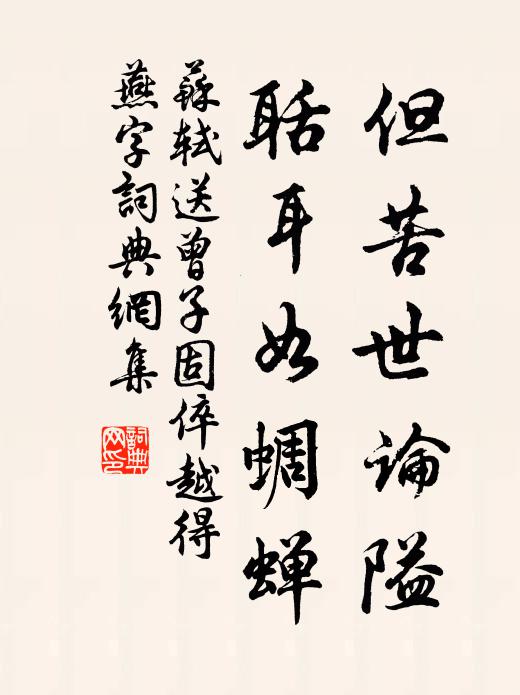 但苦世论隘
聒耳如蜩蝉
蘇轼送曾子固倅越得
燕字詞典網集
詞典网印